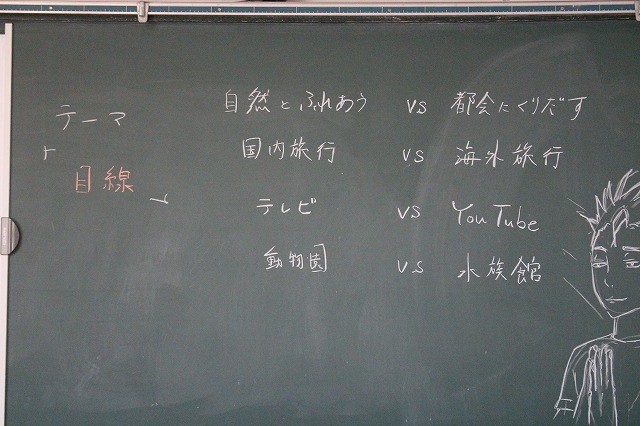 テーマ
「目線」
自然とふれあう vs 都会にくりだす
国内旅行 vs 海外旅行
テレビ vs YouTube
動物園 vs 水族館